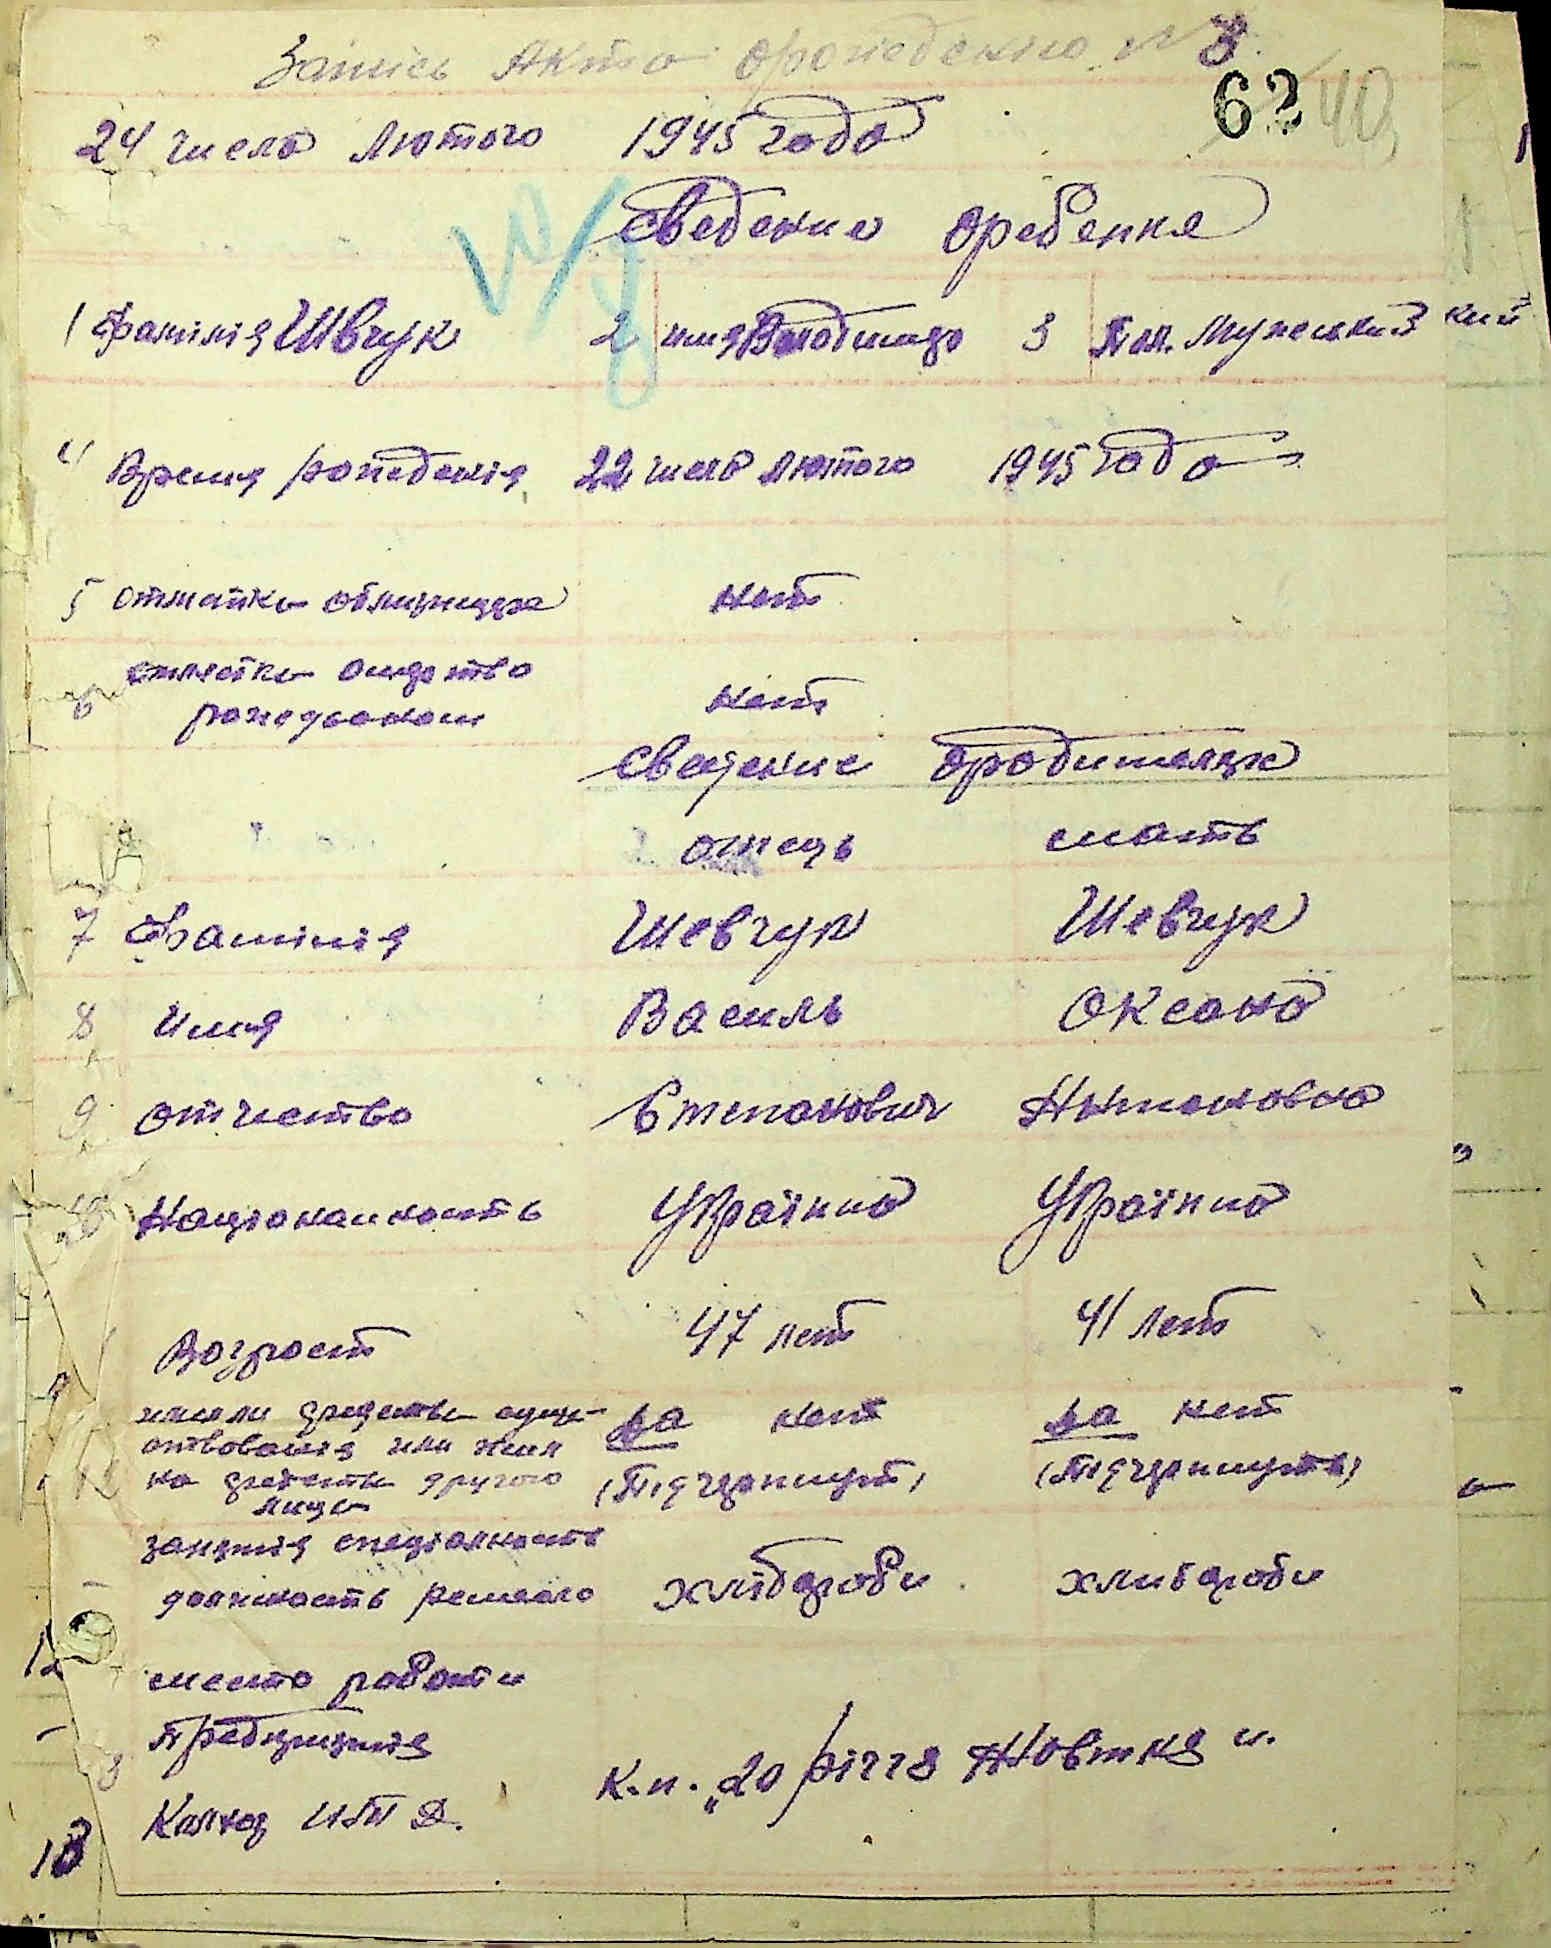 Запись Акта орождение № 3.
62 40
24 числа Лютого 1945 года
Сведение оребенке
1 Фамілія Швчук 2 имя Володимер 3 Пол. Мужеський кий
4 Время рождения 22 число лютого 1945 года
5 отметка облизнецах нет
6 отметка омертво рожедьоном нет
Сведение ородителях
отець мать
7 Фамілія Шевчук Шевчук
8 Имя Василь Оксана
9 отчество Степанович Антоновна
10 Національность Україна Україна
Возрост 47 лет 41 лет
имели средства суще-
ствования или жил
на средства другого
лица
да нет да нет
(Підчеркнут) (Підчеркнуть)
занятія спеціалность
должность ремесло хлібороби хлибороби
12 место работи
Предприятія
Колхоз ИТД. К.н. „20 річчя Жовтня".
13